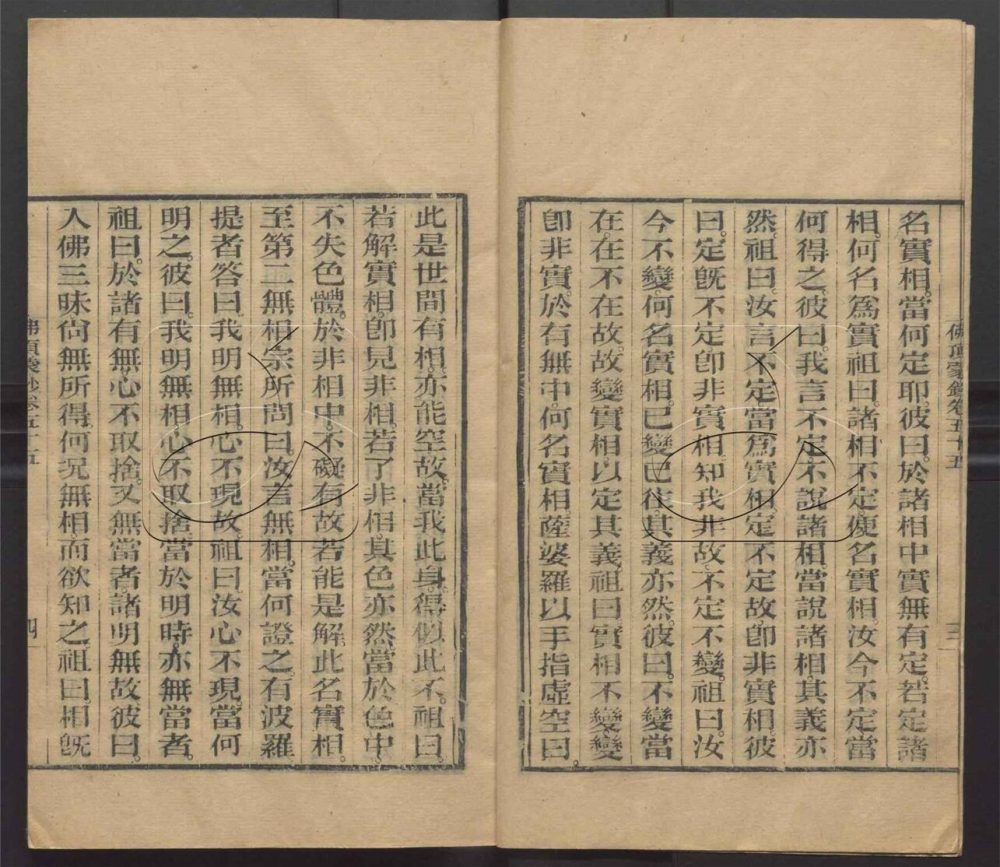 佛頂蒙鈔卷五十五
三
名實相。當何定耶彼曰。於諸相中實無有定。若定諸
相。何名爲實祖曰。諸相不定便名實相。汝今不定當
何得之。彼曰。我言不定不說諸相。當說諸相。其義亦
然祖曰。汝言不定。當爲實相。定不定故。卽非實相。彼
曰。定旣不定卽非實相。知我非故。不定不變。祖曰。汝
今不變何名實相。已變已往其義亦然。彼曰。不變當
在在不在故。故變實相以定其義祖曰實相不變變
卽非實於有無中何名實相薩婆羅以手指虛空曰。
此是世間有相。亦能空故。當我此身。得似此不。祖曰。
若解實相。卽見非相。若了非相其色亦然當於色中
不失色體。於非相中。不礙有故若能是解此名實相。
至第二無相宗所問曰。汝言無相。當何證之有波羅
提者答曰。我明無相。心不現故。祖曰汝心不現。當何
明之。彼曰。我明無相。心不取捨當於明時亦無當者。
祖曰。於諸有無心不取捨。又無當者。諸明無故彼曰。
入佛三昧尙無所得。何况無相而欲知之祖曰。相旣
佛頂蒙鈔卷五十五
四